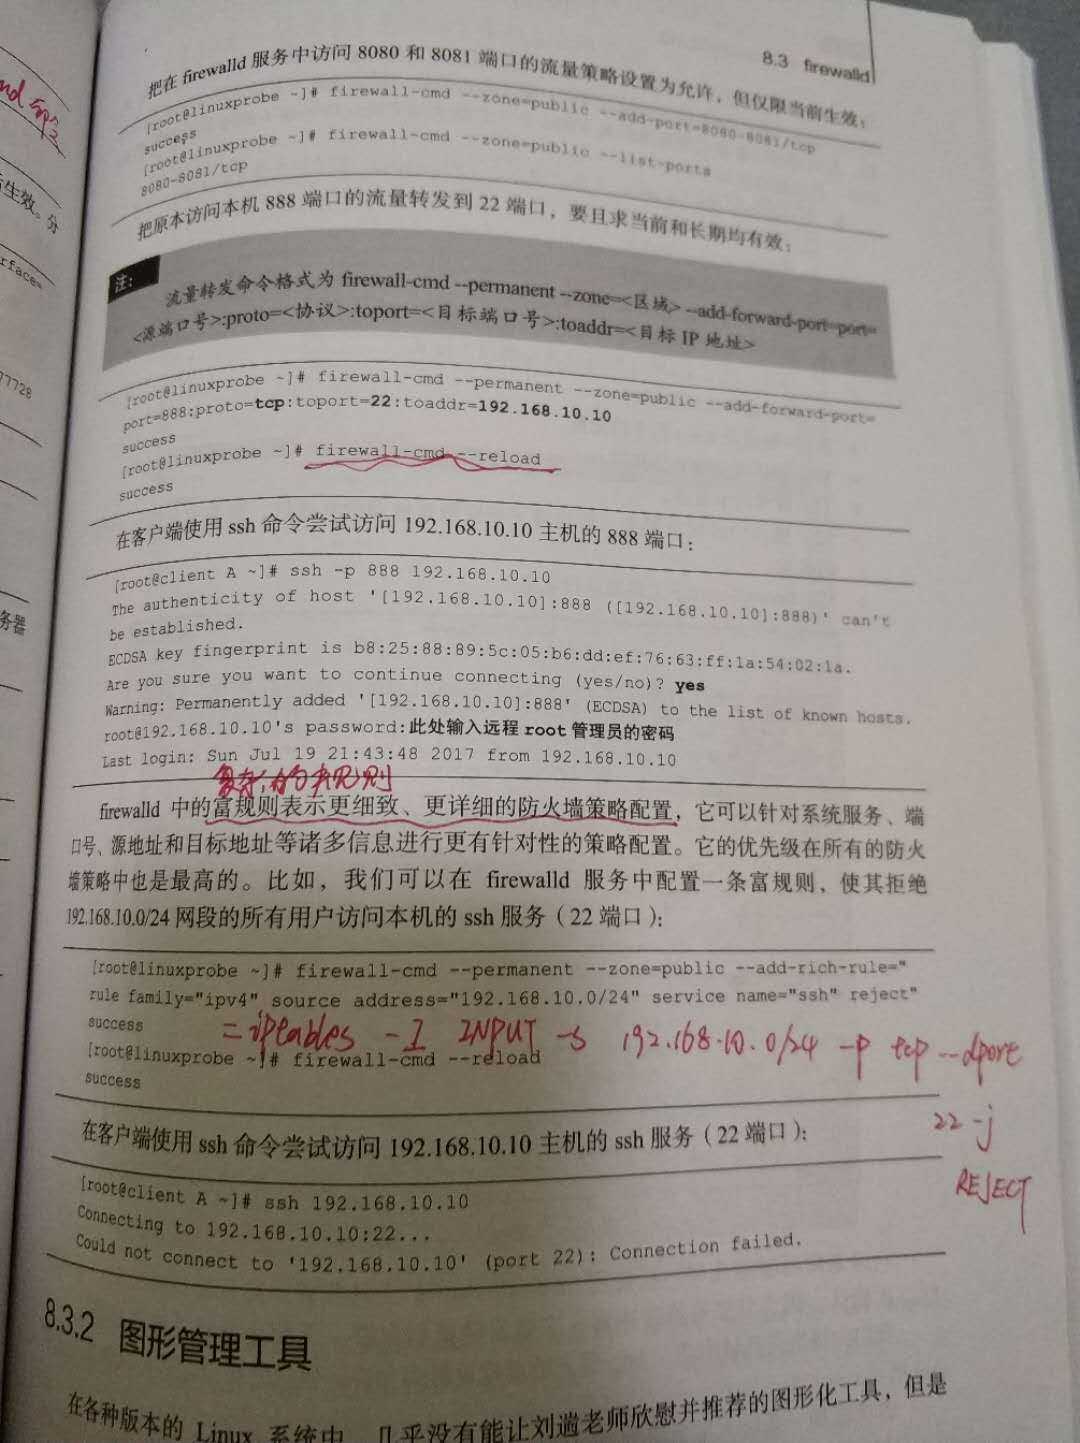 8.3 firewalld
把在 firewalld 服务中访问 8080 和 8081 端口的流量策略设置为允许，但仅限当前生效：
[root@linuxprobe ~]# firewall-cmd --zone=public --add-port=8080-8081/tcp
success
[root@linuxprobe ~]# firewall-cmd --zone=public --list-ports
8080-8081/tcp
把原本访问本机 888 端口的流量转发到 22 端口，要且求当前和长期均有效：
注：
流量转发命令格式为 firewall-cmd --permanent --zone=<区域> --add-forward-port=port=
<源端口号>:proto=<协议>:toport=<目标端口号>:toaddr=<目标 IP 地址>
[root@linuxprobe ~]# firewall-cmd --permanent --zone=public --add-forward-port=
port=888:proto=tcp:toport=22:toaddr=192.168.10.10
success
[root@linuxprobe ~]# firewall-cmd --reload
success
在客户端使用 ssh 命令尝试访问 192.168.10.10 主机的 888 端口：
[root@client A ~]# ssh -p 888 192.168.10.10
The authenticity of host '[192.168.10.10]:888 ([192.168.10.10]:888)' can't
be established.
ECDSA key fingerprint is b8:25:88:89:5c:05:b6:dd:ef:76:63:ff:1a:54:02:1a.
Are you sure you want to continue connecting (yes/no)? yes
Warning: Permanently added '[192.168.10.10]:888' (ECDSA) to the list of known hosts.
root@192.168.10.10's password:此处输入远程 root 管理员的密码
Last login: Sun Jul 19 21:43:48 2017 from 192.168.10.10
复杂的规则
firewalld 中的富规则表示更细致、更详细的防火墙策略配置，它可以针对系统服务、端
口号、源地址和目标地址等诸多信息进行更有针对性的策略配置。它的优先级在所有的防火
墙策略中也是最高的。比如，我们可以在 firewalld 服务中配置一条富规则，使其拒绝
192.168.10.0/24 网段的所有用户访问本机的 ssh 服务（22 端口）：
[root@linuxprobe ~]# firewall-cmd --permanent --zone=public --add-rich-rule="
rule family="ipv4" source address="192.168.10.0/24" service name="ssh" reject"
success
=iptables -I INPUT -s 192.168.10.0/24 -p tcp --dport
22 -j
REJECT
[root@linuxprobe ~]# firewall-cmd --reload
success
在客户端使用 ssh 命令尝试访问 192.168.10.10 主机的 ssh 服务（22 端口）：
[root@client A ~]# ssh 192.168.10.10
Connecting to 192.168.10.10:22...
Could not connect to '192.168.10.10' (port 22): Connection failed.
8.3.2 图形管理工具
在各种版本的 Linux 系统中，几乎没有能让刘遄老师欣慰并推荐的图形化工具，但是
生效。分
rface=
77728
务器